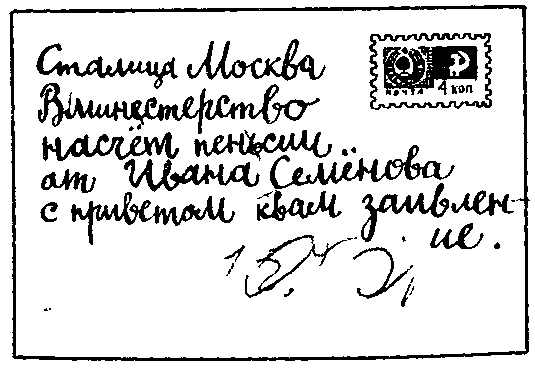 Сталица Москва
Вминестерство
насчёт пеньсии
от Ивана Семёнова
с приветом квам заивлен-
ие.
почта
4 коп